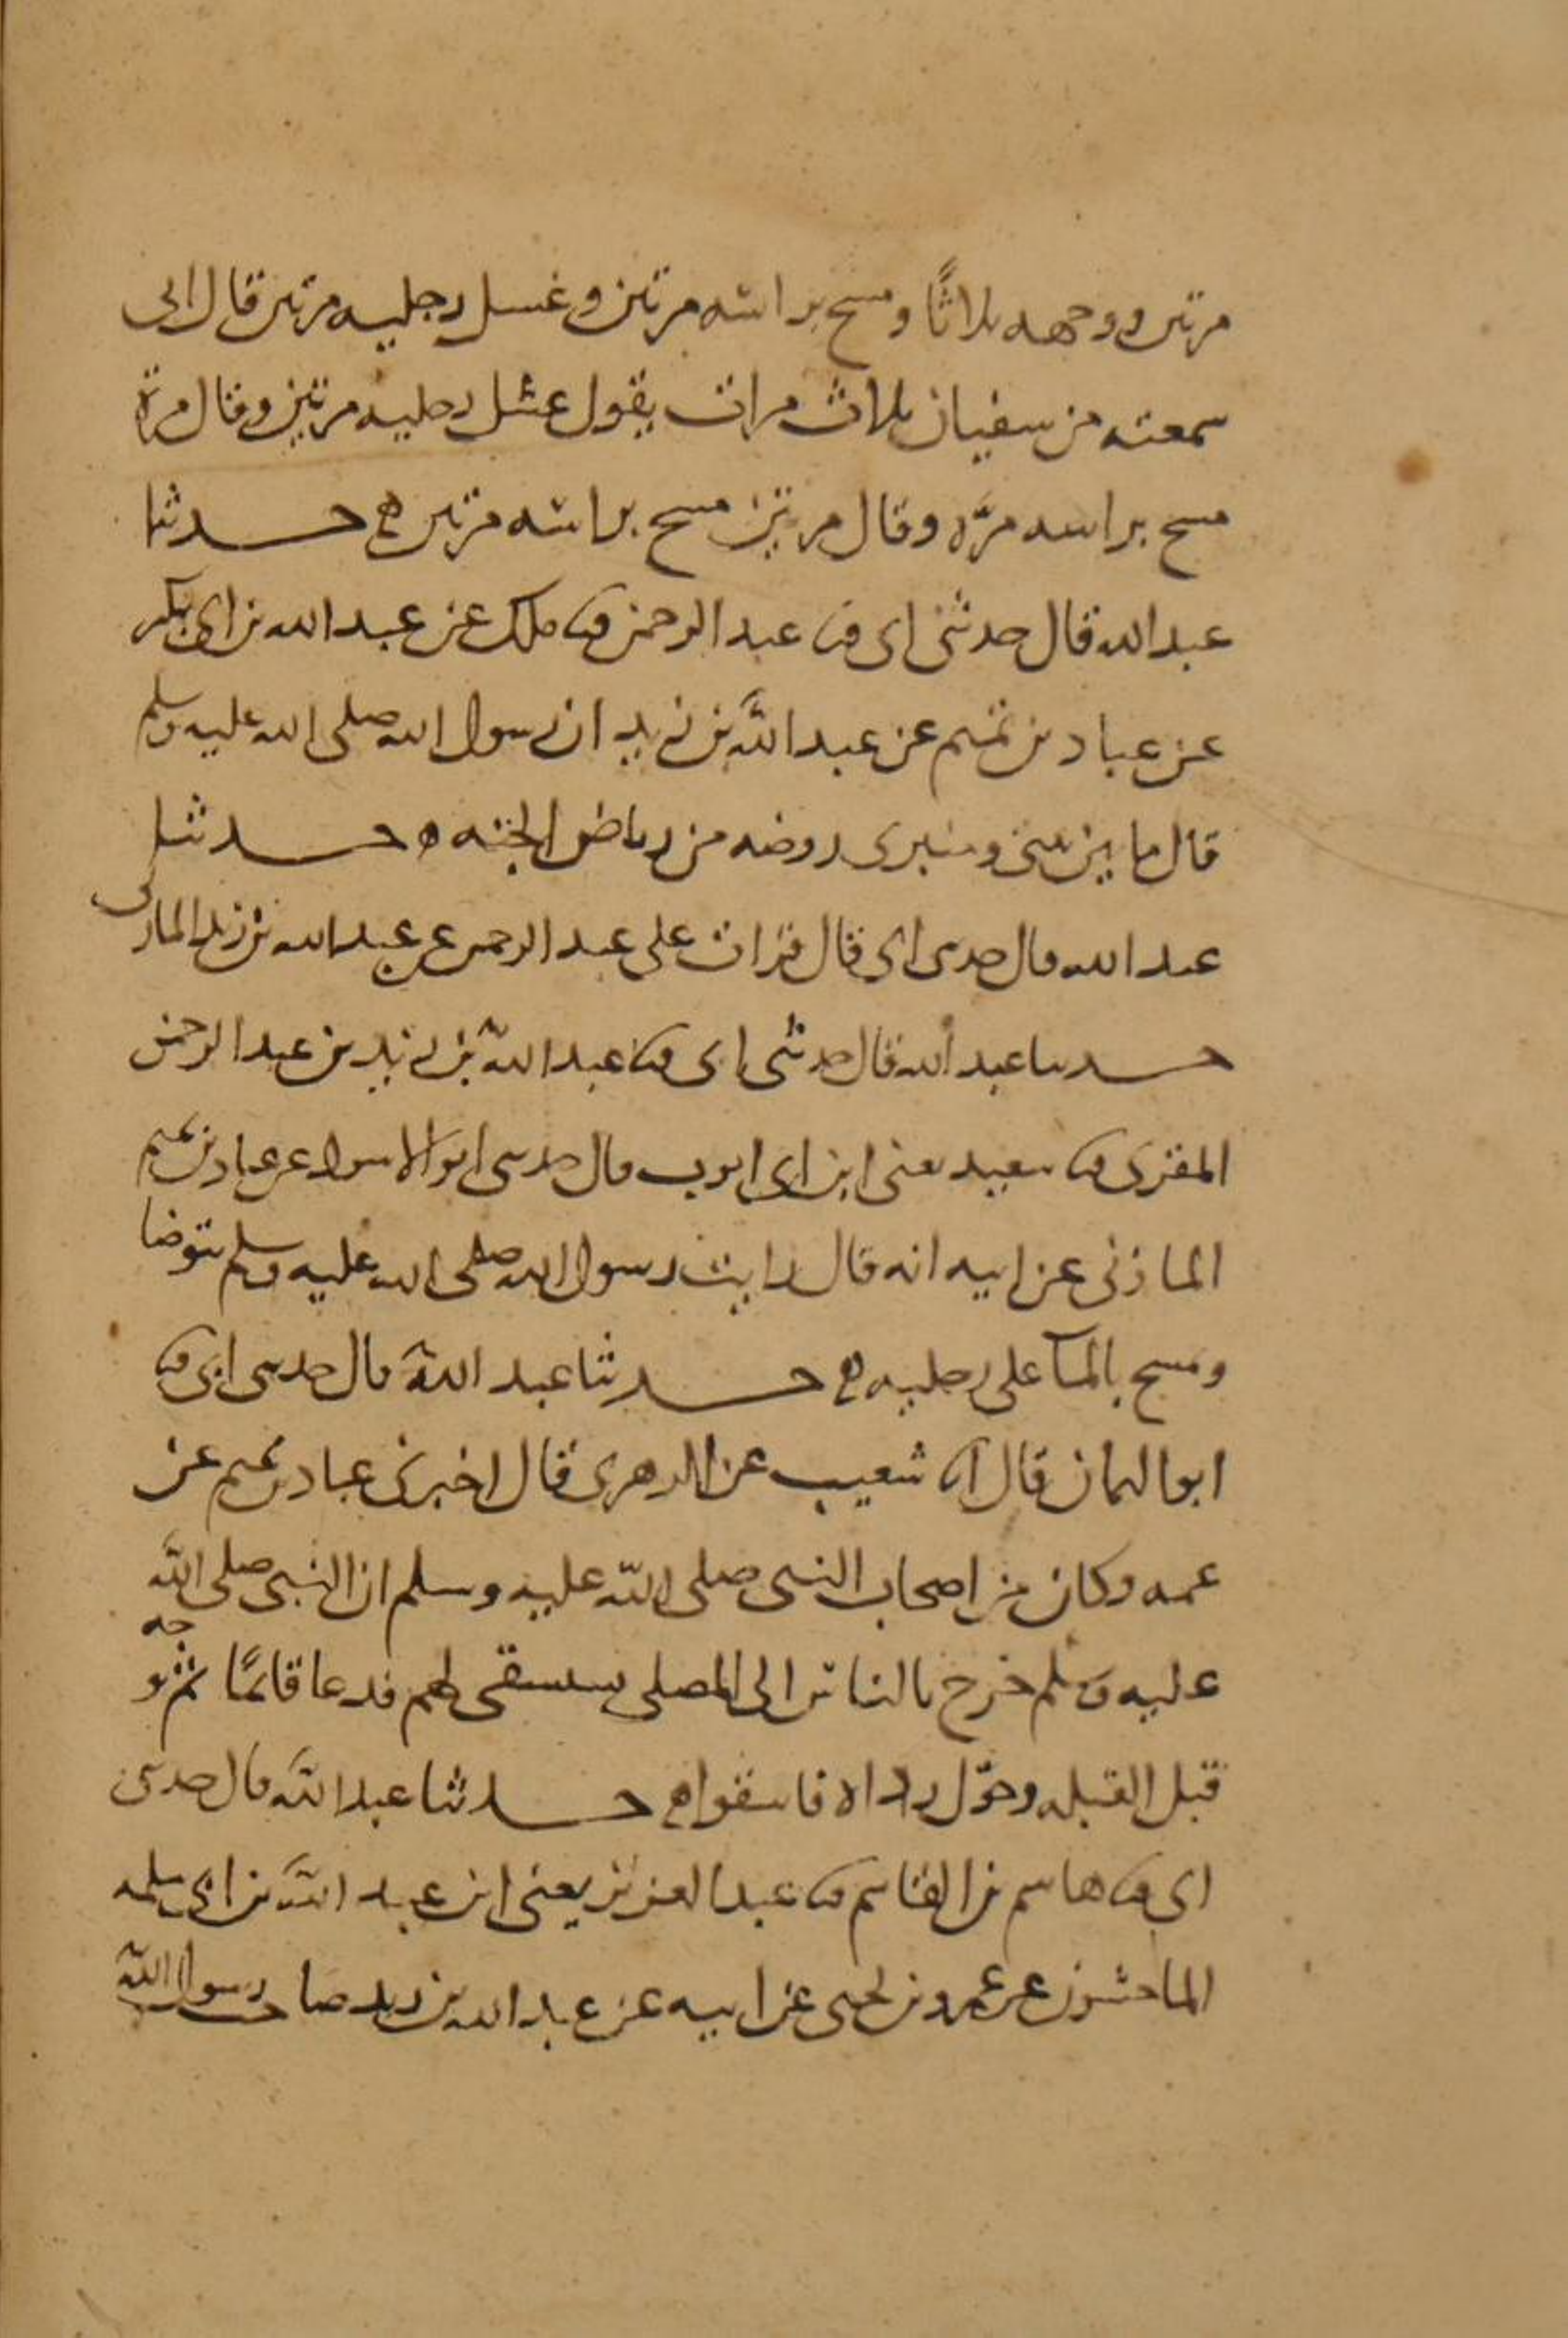 مرتين ووجهه ثلاثًا ومسح براسه مرتين وغسل رجليه مرتين قال ابي
سمعته من سفيان ثلاث مرات يقول غسل رجليه مرتين وقال مرة
مسح براسه مرّه وقال مرتين مسح براسه مرتين ه حدثنا
عبد الله قال حدثني ابي ثنا عبد الرحمن ثنا ملك عن عبد الله بن ابي بكر
عن عباد بن تميم عن عبد الله بن زيد ان رسول الله صلى الله عليه وسلم
قال ما بين بيتي ومنبري روضه من رياض الجنه ه حدثنا
عبد الله قال حدثني ابي قال قرات على عبد الرحمن عن عبد الله بن زيد المازني
حدثنا عبد الله قال حدثني ابي ثنا عبد الله بن يزيد بن عبد الرحمن
المقري ثنا سعيد يعني ابن ابي ايوب قال حدثني ابو الاسود عن عباد بن تميم
المازني عن ابيه انه قال رايت رسول الله صلى الله عليه وسلم يتوضا
ومسح بالمآ على رجليه ه حدثنا عبد الله قال حدثني ابي ثنا
ابو اليمان قال انا شعيب عن الزهري قال اخبرني عباد بن تميم عن
عمه وكان من اصحاب النبي صلى الله عليه وسلم ان النبي صلى الله
عليه وسلم خرج بالناس الى المصلى يستسقي لهم فدعا قائمًا ثم توجه
قبل القبله وحوّل رداه فاسقوا ه حدثنا عبد الله قال حدثني
ابي ثنا هاشم بن القاسم ثنا عبد العزيز يعني ابن عبد الله بن ابي سلمه
الماجشون عن عمرو بن يحيى عن ابيه عن عبد الله بن زيد صاحب رسول الله